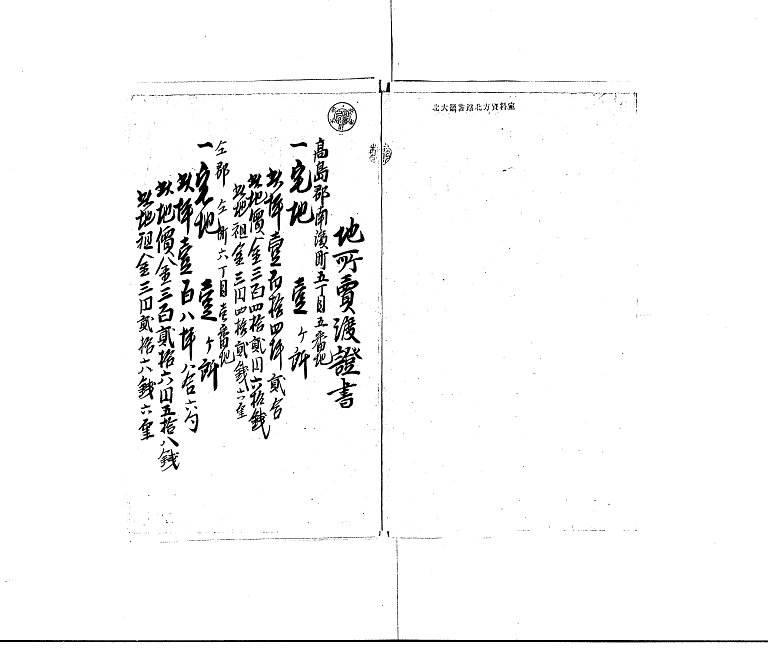 北大圖書館北方資料室
地所賣渡證書
高島郡南濱町五丁目五番地
一宅地 壹ヶ所
此坪壹百拾四坪貳合
此地價金三百四拾貳円六拾錢
此地租金三円四拾貳錢六厘
仝郡仝町六丁目壹番地
一宅地 壹ヶ所
此坪壹百八坪八合六勺
此地價金三百貳拾六円五拾八錢
此地租金三円貳拾六錢六厘